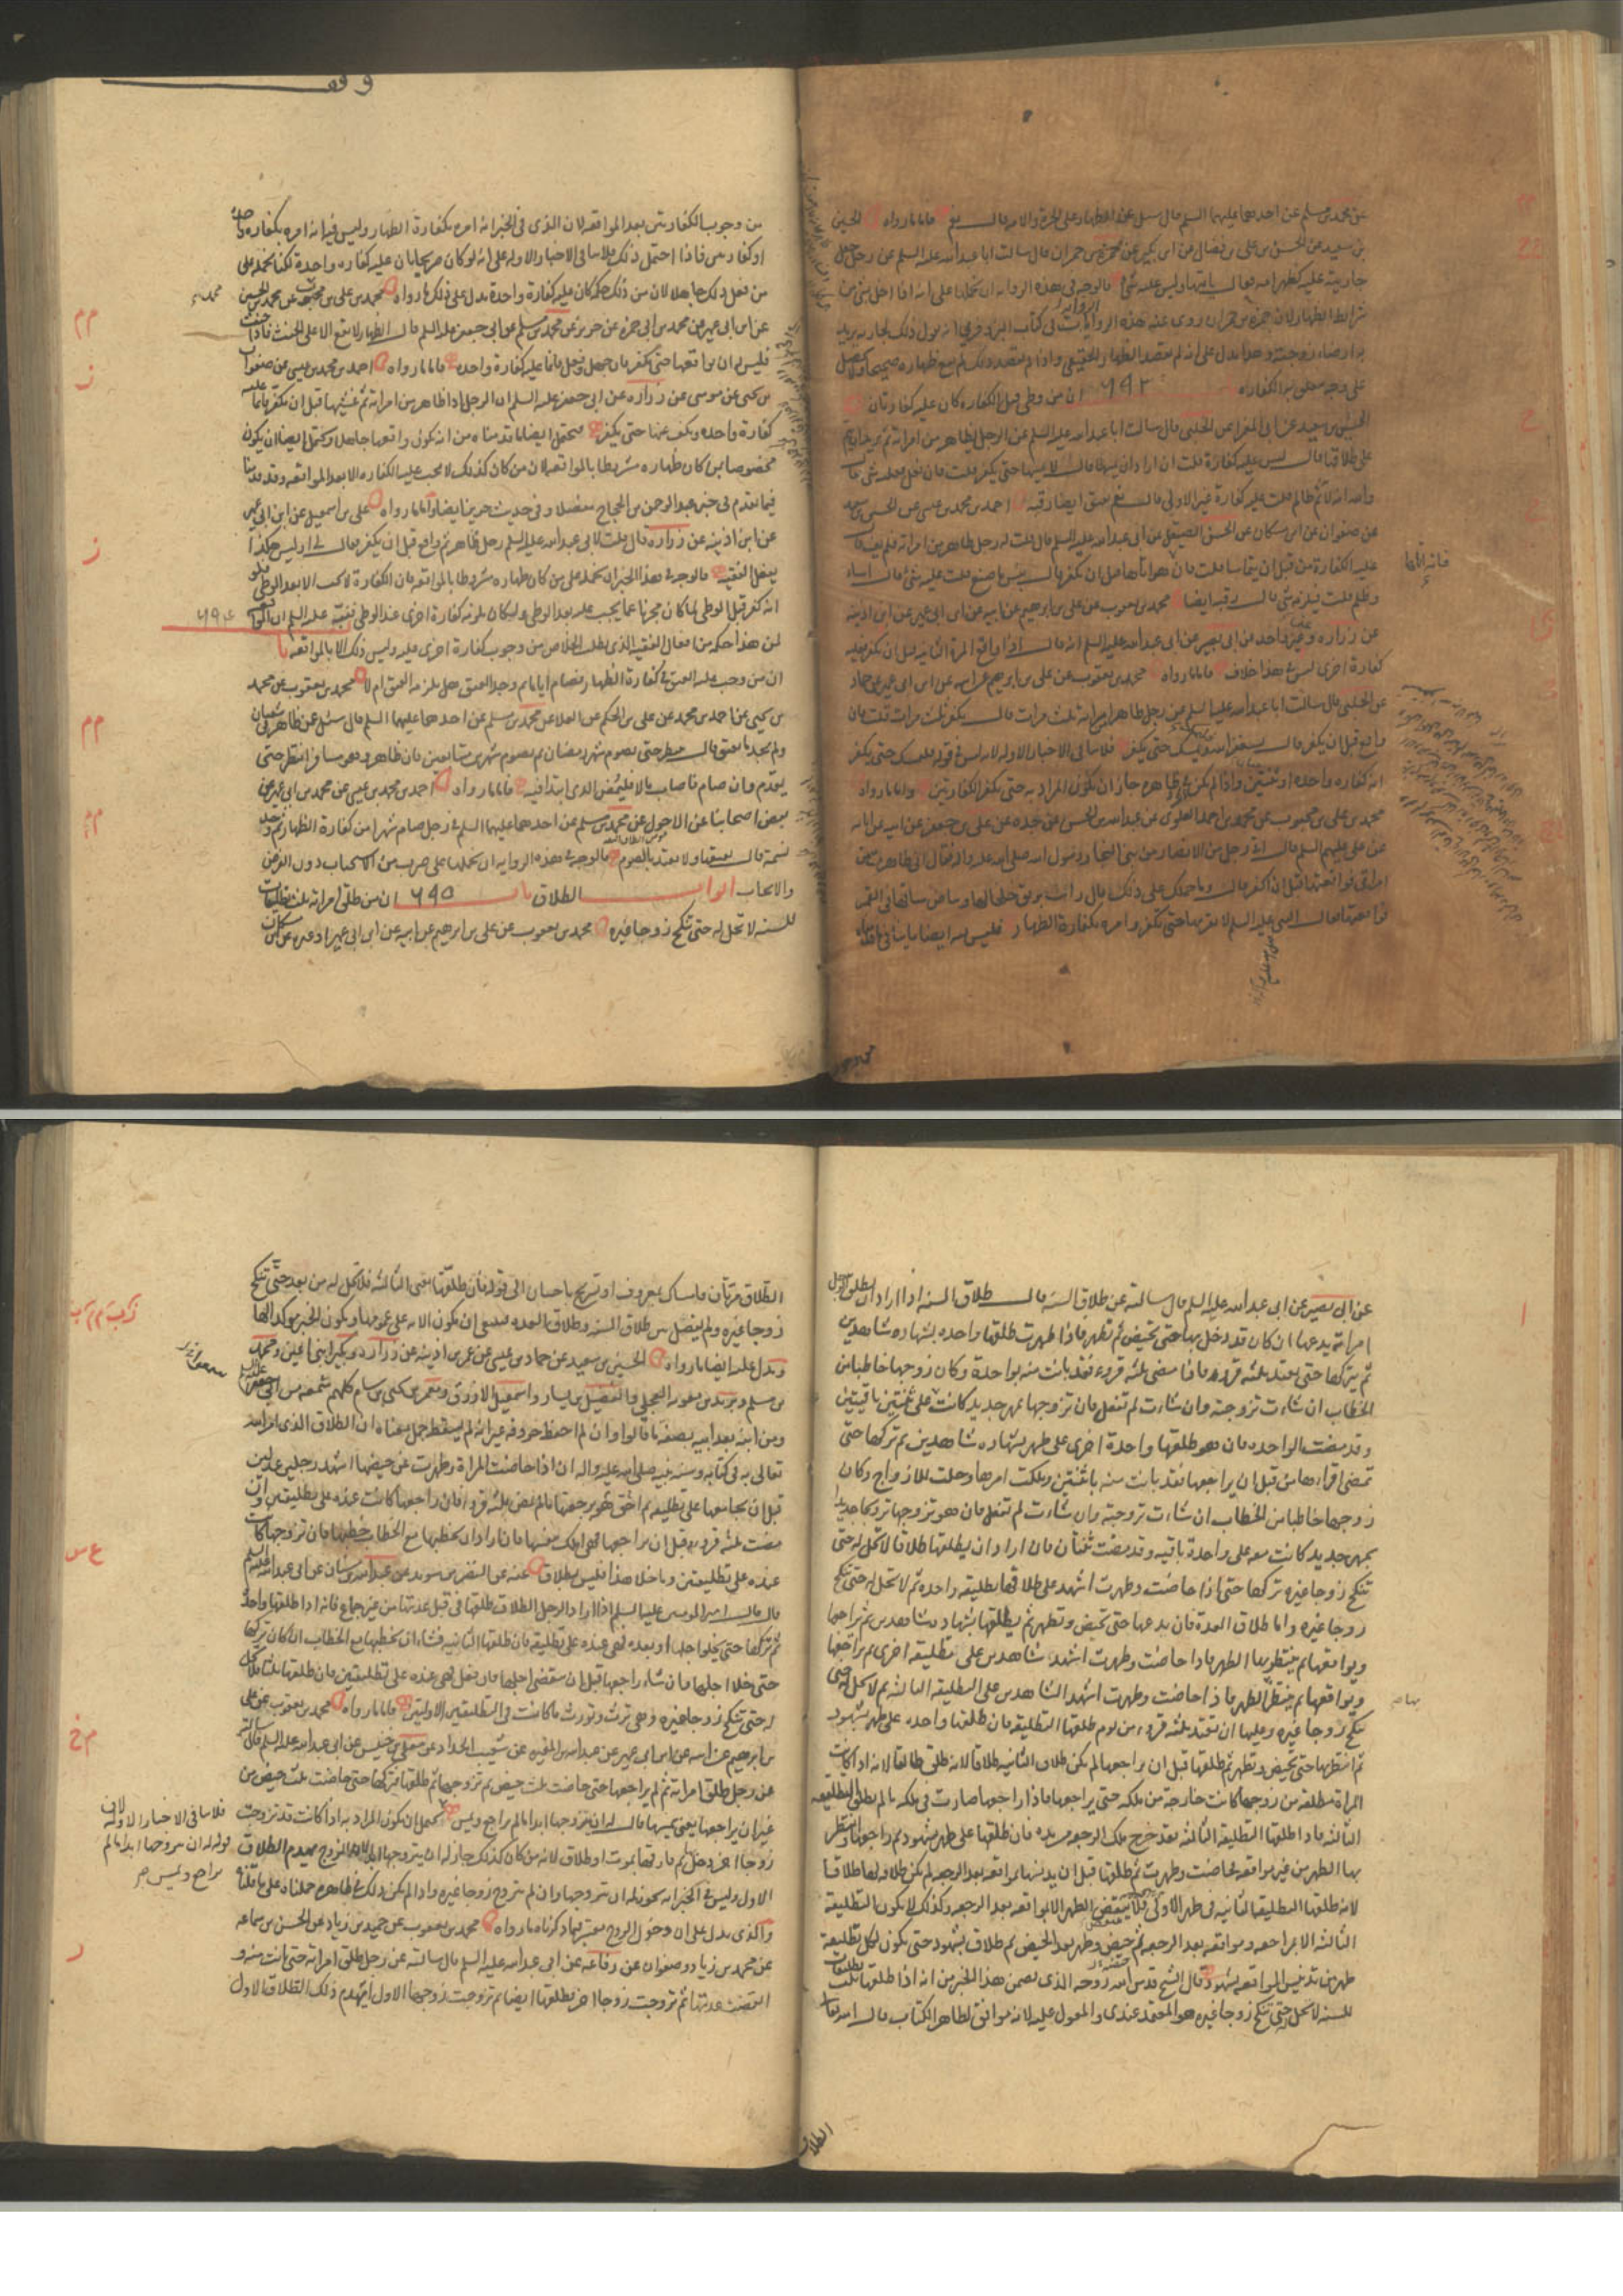 عن محمد بن مسلم عن احدهما عليهما السلم قال سئل عن الظهار على الحرة والامة قال نعم فاما ما رواه الحسين
بن سعيد عن الحسن بن على بن فضال عن ابن بكير عن حمزة بن حمران قال سالت ابا عبد الله عليه السلم عن رجل جعل
جاريته عليه كظهر امه فقال ياتيها وليس عليه شئ فالوجه فى هذه الرواية ان نحملها على انه اذا اخل بشئ من
شرايط الظهار لان حمزة بن حمران روى عنه هذه الرواية فى كتاب البزوفرى انه يقول ذلك لجاريته يريد
به ارضاء زوجته وهذا يدل على انه لم يقصد الظهار الحقيقى واذا لم يقصد ذلك لم يقع ظهاره صحيحا ولا يحصل
على وجه يتعلق به الكفارة ان من وطى قبل الكفاره كان عليه كفارتان
الحسين بن سعيد عن ابى المغرا عن الحلبى قال سالت ابا عبد الله عليه السلم عن الرجل يظاهر من امراته ثم يريد ان يتم
على طلاقها قال ليس عليه كفارة قلت ان اراد ان يمسها قال لا يمسها حتى يكفر قلت فان فعل فعليه شئ قال
والله انه لاثم ظالم قلت عليه كفارة غير الاولى قال نعم يعتق ايضا رقبه احمد بن محمد بن عيسى عن الحسين بن سعيد
عن صفوان عن ابن مسكان عن الحسن الصيقل عن ابى عبد الله عليه السلم قال قلت له رجل ظاهر من امراته فلم يف قال
عليه الكفارة من قبل ان يتماسا قلت فان هو اتاها قبل ان يكفر قال بئس ما صنع قلت عليه شئ قال اساء
وظلم قلت فيلزمه شئ قال رقبه ايضا محمد بن يعقوب عن على بن ابرهيم عن ابيه عن ابن ابى عمير عن ابن اذينه
عن زراره وغير واحد عن ابى بصير عن ابى عبد الله عليه السلم انه قال اذا واقع المرة الثانيه قبل ان يكفر فعليه
كفارة اخرى ليس فى هذا خلاف فاما ما رواه محمد بن يعقوب عن على بن ابرهيم عن ابيه عن ابن ابى عمير عن حماد
عن الحلبى قال سالت ابا عبد الله عليه السلم عن رجل ظاهر من امراته ثلث مرات قال يكفر ثلث مرات قلت فان
واقع قبل ان يكفر قال يستغفر الله ويمسك حتى يكفر فلا ينافى الاخبار الاوله لانه ليس فى قوله يمسك حتى يكفر
انه كفاره واحده او ثنتين واذا لم يكن فى ظاهره جاز ان يكون المراد به حتى يكفر الكفارتين واما ما رواه
محمد بن على بن محبوب عن محمد بن احمد العلوى عن عبد الله بن الحسن عن جده عن على بن جعفر عن ابيه عن ابائه
عن على عليهم السلم قال اتى رجل من الانصار من بنى النجار رسول الله صلى الله عليه واله فقال انى ظاهرت من
امراتى فواقعتها قبل ان اكفر قال وما حملك على ذلك قال رايت بريق خلخالها وبياض ساقها فى القمر
فواقعتها فقال النبى عليه السلم لا تقربها حتى تكفر وامره بكفارة الظهار فليس فيه ايضا ما ينافى ما قلناه
من وجوب الكفارتين بعد المواقعه لان الذى فى الخبر انه امره بكفارة الظهار وليس فيه انه امره بكفاره واحدة
او كفارتين فاذا احتمل ذلك فلا ينافى الاخبار الاوله على انه لو كان صريحا بان عليه كفاره واحدة لكنا نحمله على
من فعل ذلك جاهلا لان من ذلك حكمه كان عليه كفارة واحدة يدل على ذلك ما رواه محمد بن على بن محبوب عن محمد بن الحسين
عن ابن ابى عمير عن محمد بن ابى حمزه عن حريز عن محمد بن مسلم عن ابى جعفر عليه السلم قال الظهار لا يقع الا على الحنث فاذا حنث
فليس له ان يواقعها حتى يكفر فان جهل وفعل فانما عليه كفارة واحده فاما ما رواه احمد بن محمد بن عيسى عن صفوان
بن يحيى عن موسى عن زراره عن ابى جعفر عليه السلم ان الرجل اذا ظاهر من امراته ثم غشيها قبل ان يكفر فانما عليه
كفارة واحده ويكف عنها حتى يكفر فيحتمل ايضا ما قدمناه من انه يكون واقعها جاهلا ويحتمل ايضا ان يكون
مخصوصا بمن كان ظهاره مشروطا بالمواقعه لان من كان كذلك لا يجب عليه الكفاره الا بعد المواقعه وقد بينا
فيما تقدم فى خبر عبد الرحمن بن الحجاج مفصلا وفى حديث حريز ايضا واما ما رواه على بن اسمعيل عن ابن ابى عمير
عن ابن اذينه عن زراره قال قلت لابى عبد الله عليه السلم رجل ظاهر ثم واقع قبل ان يكفر فقال لى اوليس هكذا
يفعل الفقيه فالوجه فى هذا الخبر ان نحمله على من كان ظهاره مشروطا بالمواقعه فان الكفارة لا تجب الا بعد الوطى فلو
انه كفر قبل الوطى لما كان مجزيا عما يجب عليه بعد الوطى ولكان يلزمه كفارة اخرى عند الوطى فنبه عليه السلم ان المواقعه
لمن هذا حكمه من افعال الفقيه الذى يطلب الخلاص من وجوب كفارة اخرى عليه وليس ذلك الا بالمواقعه باب ٦٩٤
ان من وجب عليه العتق فى كفارة الظهار فصام اياما ثم وجد العتق هل يلزمه العتق ام لا محمد بن يعقوب عن محمد
بن يحيى عن احمد بن محمد عن على بن الحكم عن العلا عن محمد بن مسلم عن احدهما عليهما السلم قال سئل عن ظاهر فى شعبان
ولم يجد ما يعتق قال ينتظر حتى يصوم شهر رمضان ثم يصوم شهرين متتابعين فان ظاهر وهو مسافر انتظر حتى
يقدم وان صام فاصاب مالا فليمض الذى ابتدا فيه فاما ما رواه احمد بن محمد بن عيسى عن محمد بن ابى عمير عن
بعض اصحابنا عن الاحول عن محمد بن مسلم عن احدهما عليهما السلم فى رجل صام شهرا من كفارة الظهار ثم وجد
نسمة قال يعتقها ولا يعتد بالصوم فالوجه فى هذه الروايه ان نحملها على ضرب من الاستحباب دون الفرض
والايجاب ابواب الطلاق باب ٦٩٥ ان من طلق امراته ثلث تطليقات
للسنه لا تحل له حتى تنكح زوجا غيره محمد بن يعقوب عن على بن ابرهيم عن ابيه عن ابن ابى عمير او غيره عن ابن مسكان
عن ابى بصير عن ابى عبد الله عليه السلم قال سالته عن طلاق السنه قال طلاق السنه اذا اراد ان يطلق الرجل
امراته يدعها ان كان قد دخل بها حتى تحيض ثم تطهر فاذا طهرت طلقها واحده بشهاده شاهدين
ثم يتركها حتى تعتد ثلثه قروء فاذا مضى ثلثه قروء فقد بانت منه بواحدة وكان زوجها خاطبا من
الخطاب ان شاءت تزوجته وان شاءت لم تفعل فان تزوجها بمهر جديد كانت عنده على ثنتين باقيتين
وقد مضت الواحده فان هو طلقها واحدة اخرى على طهر بشهاده شاهدين ثم تركها حتى
تمضى اقراؤها من قبل ان يراجعها فقد بانت منه باثنتين وملكت امرها وحلت للازواج وكان
زوجها خاطبا من الخطاب ان شاءت تزوجته وان شاءت لم تفعل فان هو تزوجها تزويجا جديدا
بمهر جديد كانت معه على واحدة باقيه وقد مضت ثنتان فان اراد ان يطلقها طلاقا لا تحل له حتى
تنكح زوجا غيره تركها حتى اذا حاضت وطهرت اشهد على طلاقها تطليقه واحده ثم لا تحل له حتى تنكح
زوجا غيره واما طلاق العدة فان يدعها حتى تحيض وتطهر ثم يطلقها بشهاده شاهدين ثم يراجعها
ويواقعها ثم ينتظر بها الطهر فاذا حاضت وطهرت اشهد شاهدين على تطليقه اخرى ثم يراجعها
ويواقعها ثم ينتظر الطهر فاذا حاضت وطهرت اشهد الشاهدين على التطليقه الثالثه ثم لا تحل له حتى
تنكح زوجا غيره وعليها ان تعتد ثلثه قروء من يوم طلقها التطليقه فان طلقها واحده على طهر بشهود
ثم انتظر بها حتى تحيض وتطهر ثم طلقها قبل ان يراجعها لم يكن طلاقه الثانيه طلاقا لانه طلق طالقا لانه اذا كانت
المراة مطلقه من زوجها كانت خارجة من ملكه حتى يراجعها فاذا راجعها صارت فى ملكه ما لم يطلق التطليقه
الثالثه فاذا طلقها التطليقه الثالثه فقد خرج ملك الرجعه من يده فان طلقها على طهر بشهود ثم راجعها وانتظر
بها الطهر من غير مواقعه فحاضت وطهرت ثم طلقها قبل ان يدنسها بمواقعه بعد الرجعه لم يكن طلاقه لها طلاقا
لانه طلقها التطليقه الثانيه فى طهر الاولى ولا ينقضى الطهر الا بمواقعه بعد الرجعه وكذلك لا يكون التطليقه
الثالثه الا بمراجعه ومواقعه بعد الرجعه ثم حيض وطهر بعد الحيض ثم طلاق بشهود حتى يكون لكل تطليقه
طهر من تدنيس المواقعه بشهود قال الشيخ قدس الله روحه الذى تضمن هذا الخبر من انه اذا طلقها ثلث تطليقات
للسنه لا تحل له حتى تنكح زوجا غيره هو المعتمد عندى والمعول عليه لانه موافق لظاهر الكتاب قال الله تعالى
الطلاق مرتان فامساك بمعروف او تسريح باحسان الى قوله فان طلقها يعنى الثالثه فلا تحل له من بعد حتى تنكح
زوجا غيره ولم يفصل بين طلاق السنه وطلاق العده فينبغى ان يكون الايه على عمومها ويكون الخبر موكدا لها
ويدل عليه ايضا ما رواه الحسين بن سعيد عن حماد بن عيسى عن عمر بن اذينه عن زراره وبكير ابنى اعين ومحمد
بن مسلم وبريد بن معويه العجلى والفضيل بن يسار واسمعيل الازرق ومعمر بن يحيى بن سام كلهم سمعه من ابى جعفر
ومن ابنه بعد ابيه بصفة ما قالوا وان لم احفظ حروفه غير انه لم يسقط جمل معناه ان الطلاق الذى امر الله
تعالى به فى كتابه وسنه نبيه صلى الله عليه واله ان اذا حاضت المراة وطهرت عن حيضها اشهد رجلين عدلين
قبل ان يجامعها على تطليقه ثم احق هو برجعتها ما لم تمض ثلثه قروء فان راجعها كانت عنده على تطليقتين وان
مضت ثلثه قروء قبل ان يراجعها فهى املك بنفسها فان اراد ان يخطبها مع الخطاب خطبها فان تزوجها كانت
عنده على تطليقتين وما خلا هذا فليس بطلاق عنه عن النضر بن سويد عن عبد الله بن سنان عن ابى عبد الله عليه السلم
قال قال امير المومنين عليه السلم اذا اراد الرجل الطلاق طلقها فى قبل عدتها من غير جماع فانه اذا طلقها واحدة
ثم تركها حتى يخلوا اجلها او بعده فهى عنده على تطليقه فان طلقها الثانيه فشاء ان يخطبها مع الخطاب ان كان تركها
حتى خلا اجلها فان شاء راجعها قبل ان ينقضى اجلها فان فعل فهى عنده على تطليقتين فان طلقها ثلثا فلا تحل
له حتى تنكح زوجا غيره وهى ترث وتورث ما كانت فى التطليقتين الاولتين فاما ما رواه محمد بن يعقوب عن على
بن ابرهيم عن ابيه عن ابن ابى عمير عن عبد الله بن المغيره عن شعيب الحداد عن معلى بن خنيس عن ابى عبد الله عليه السلم قال سالته
عن رجل طلق امراته ثم لم يراجعها حتى حاضت ثلث حيض ثم تزوجها ثم طلقها فتركها حتى حاضت ثلث حيض من
غير ان يراجعها يعنى يمسها قال له ان يتزوجها ابدا ما لم يراجع ويمس يحتمل ان يكون المراد به اذا كانت قد تزوجت
زوجا اخر دخل بها ثم فارقها بموت او طلاق لانه من كان كذلك جاز له ان يتزوجها ابدا لان الزوج يهدم الطلاق
الاول وليس فى الخبر انه يجوز له ان يتزوجها وان لم تتزوج زوجا غيره واذا لم يكن ذلك فى ظاهره حملناه على ما قلناه
والذى يدل على ان دخول الزوج معتبر فيما ذكرناه ما رواه محمد بن يعقوب عن حميد بن زياد عن الحسن بن سماعه
عن محمد بن زياد وصفوان عن رفاعه عن ابى عبد الله عليه السلم قال سالته عن رجل طلق امراته حتى بانت منه و
انقضت عدتها ثم تزوجت زوجا اخر فطلقها ايضا ثم تزوجت زوجها الاول ايهدم ذلك الطلاق الاول